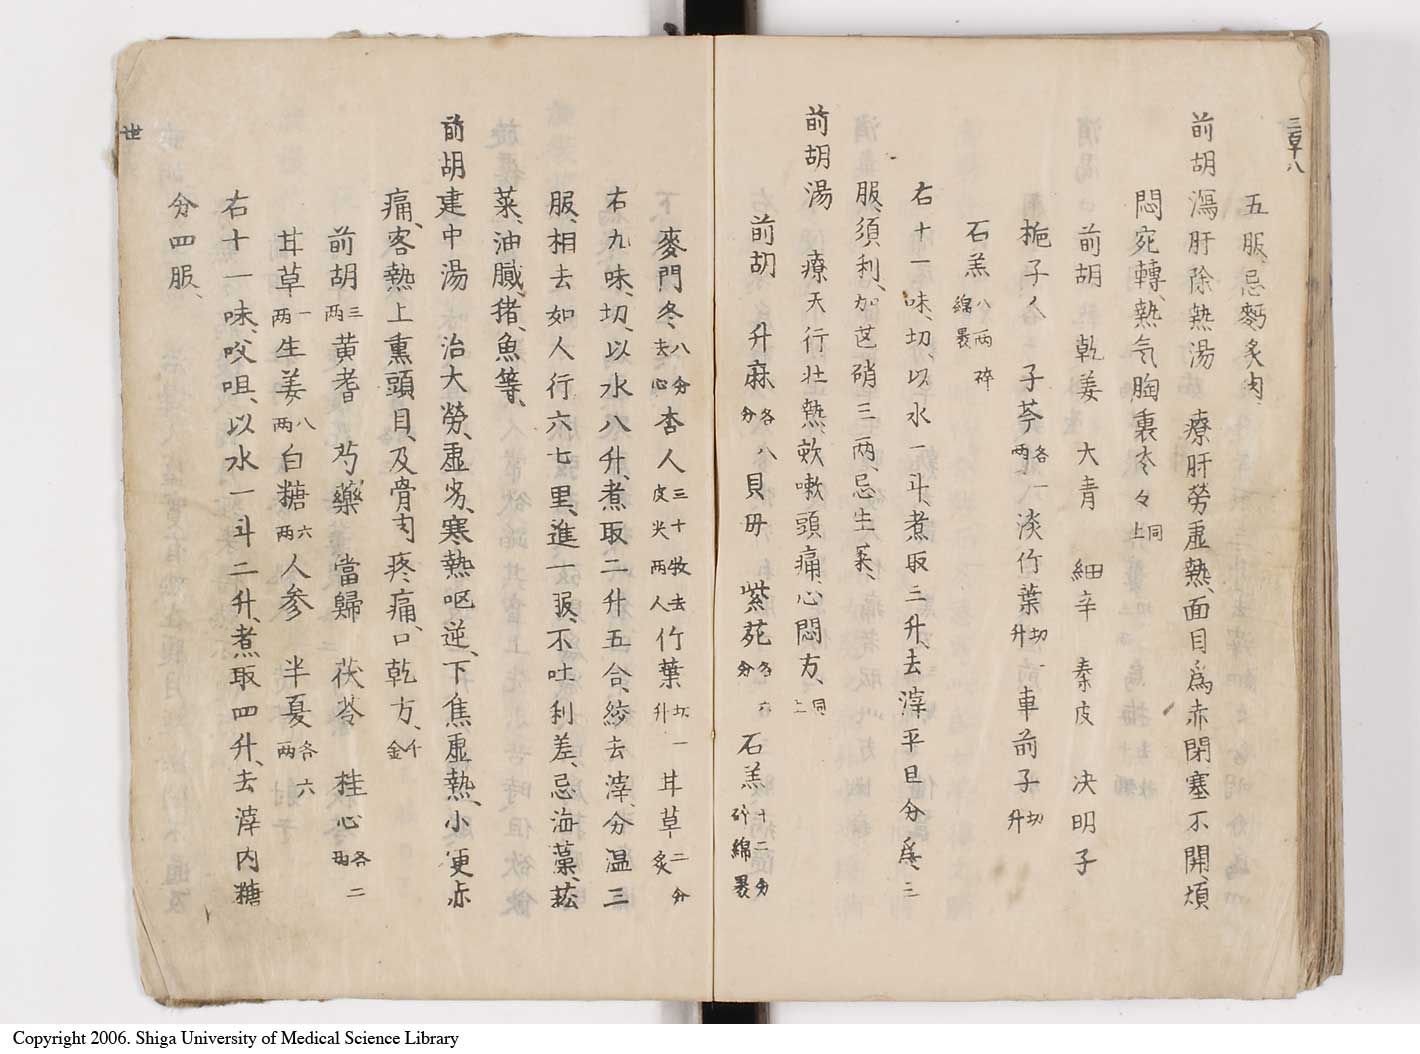 五服、忌麪炙肉、
前胡瀉肝除熱湯 療肝勞虛熱、面目爲赤閉塞不開、煩
悶宛轉、熱气胸裏炎々 同上
前胡 乾姜 大青 細辛 秦皮 决明子
梔子人 子芩各一两 淡竹葉切一升 車前子切一升
石羔八两碎綿褁
右十一味、切、以水一斗、煮取三升、去滓、平旦分爲三
服、須利、加芒硝三两、忌生菜、
前胡湯 療天行壮熱、欬嗽頭痛、心悶方、同上
前胡 升麻各八分 貝毋 紫菀各六分 石羔十二分碎綿褁
麥門冬八分去心 杏人三十牧去皮尖两人 竹葉切一升 甘草二分炙
右九味、切、以水八升、煮取二升五合、絞去滓、分温三
服、相去如人行六七里、進一服、不吐利差、忌海藻、菘
菜、油膩、猪、魚等、
前胡建中湯 治大勞、虛劣、寒熱呕逆、下焦虛熱、小更赤
痛、客熱上熏頭目、及骨肉疼痛、口乾方、千金
前胡三两 黄耆 芍藥 當歸 茯苓 桂心各二两
甘草一两 生姜八两 白糖六两 人参 半夏各六两
右十一味、㕮咀、以水一斗二升、煮取四升、去滓内糖
分四服、
三百十八
世
Copyright 2006. Shiga University of Medical Science Library